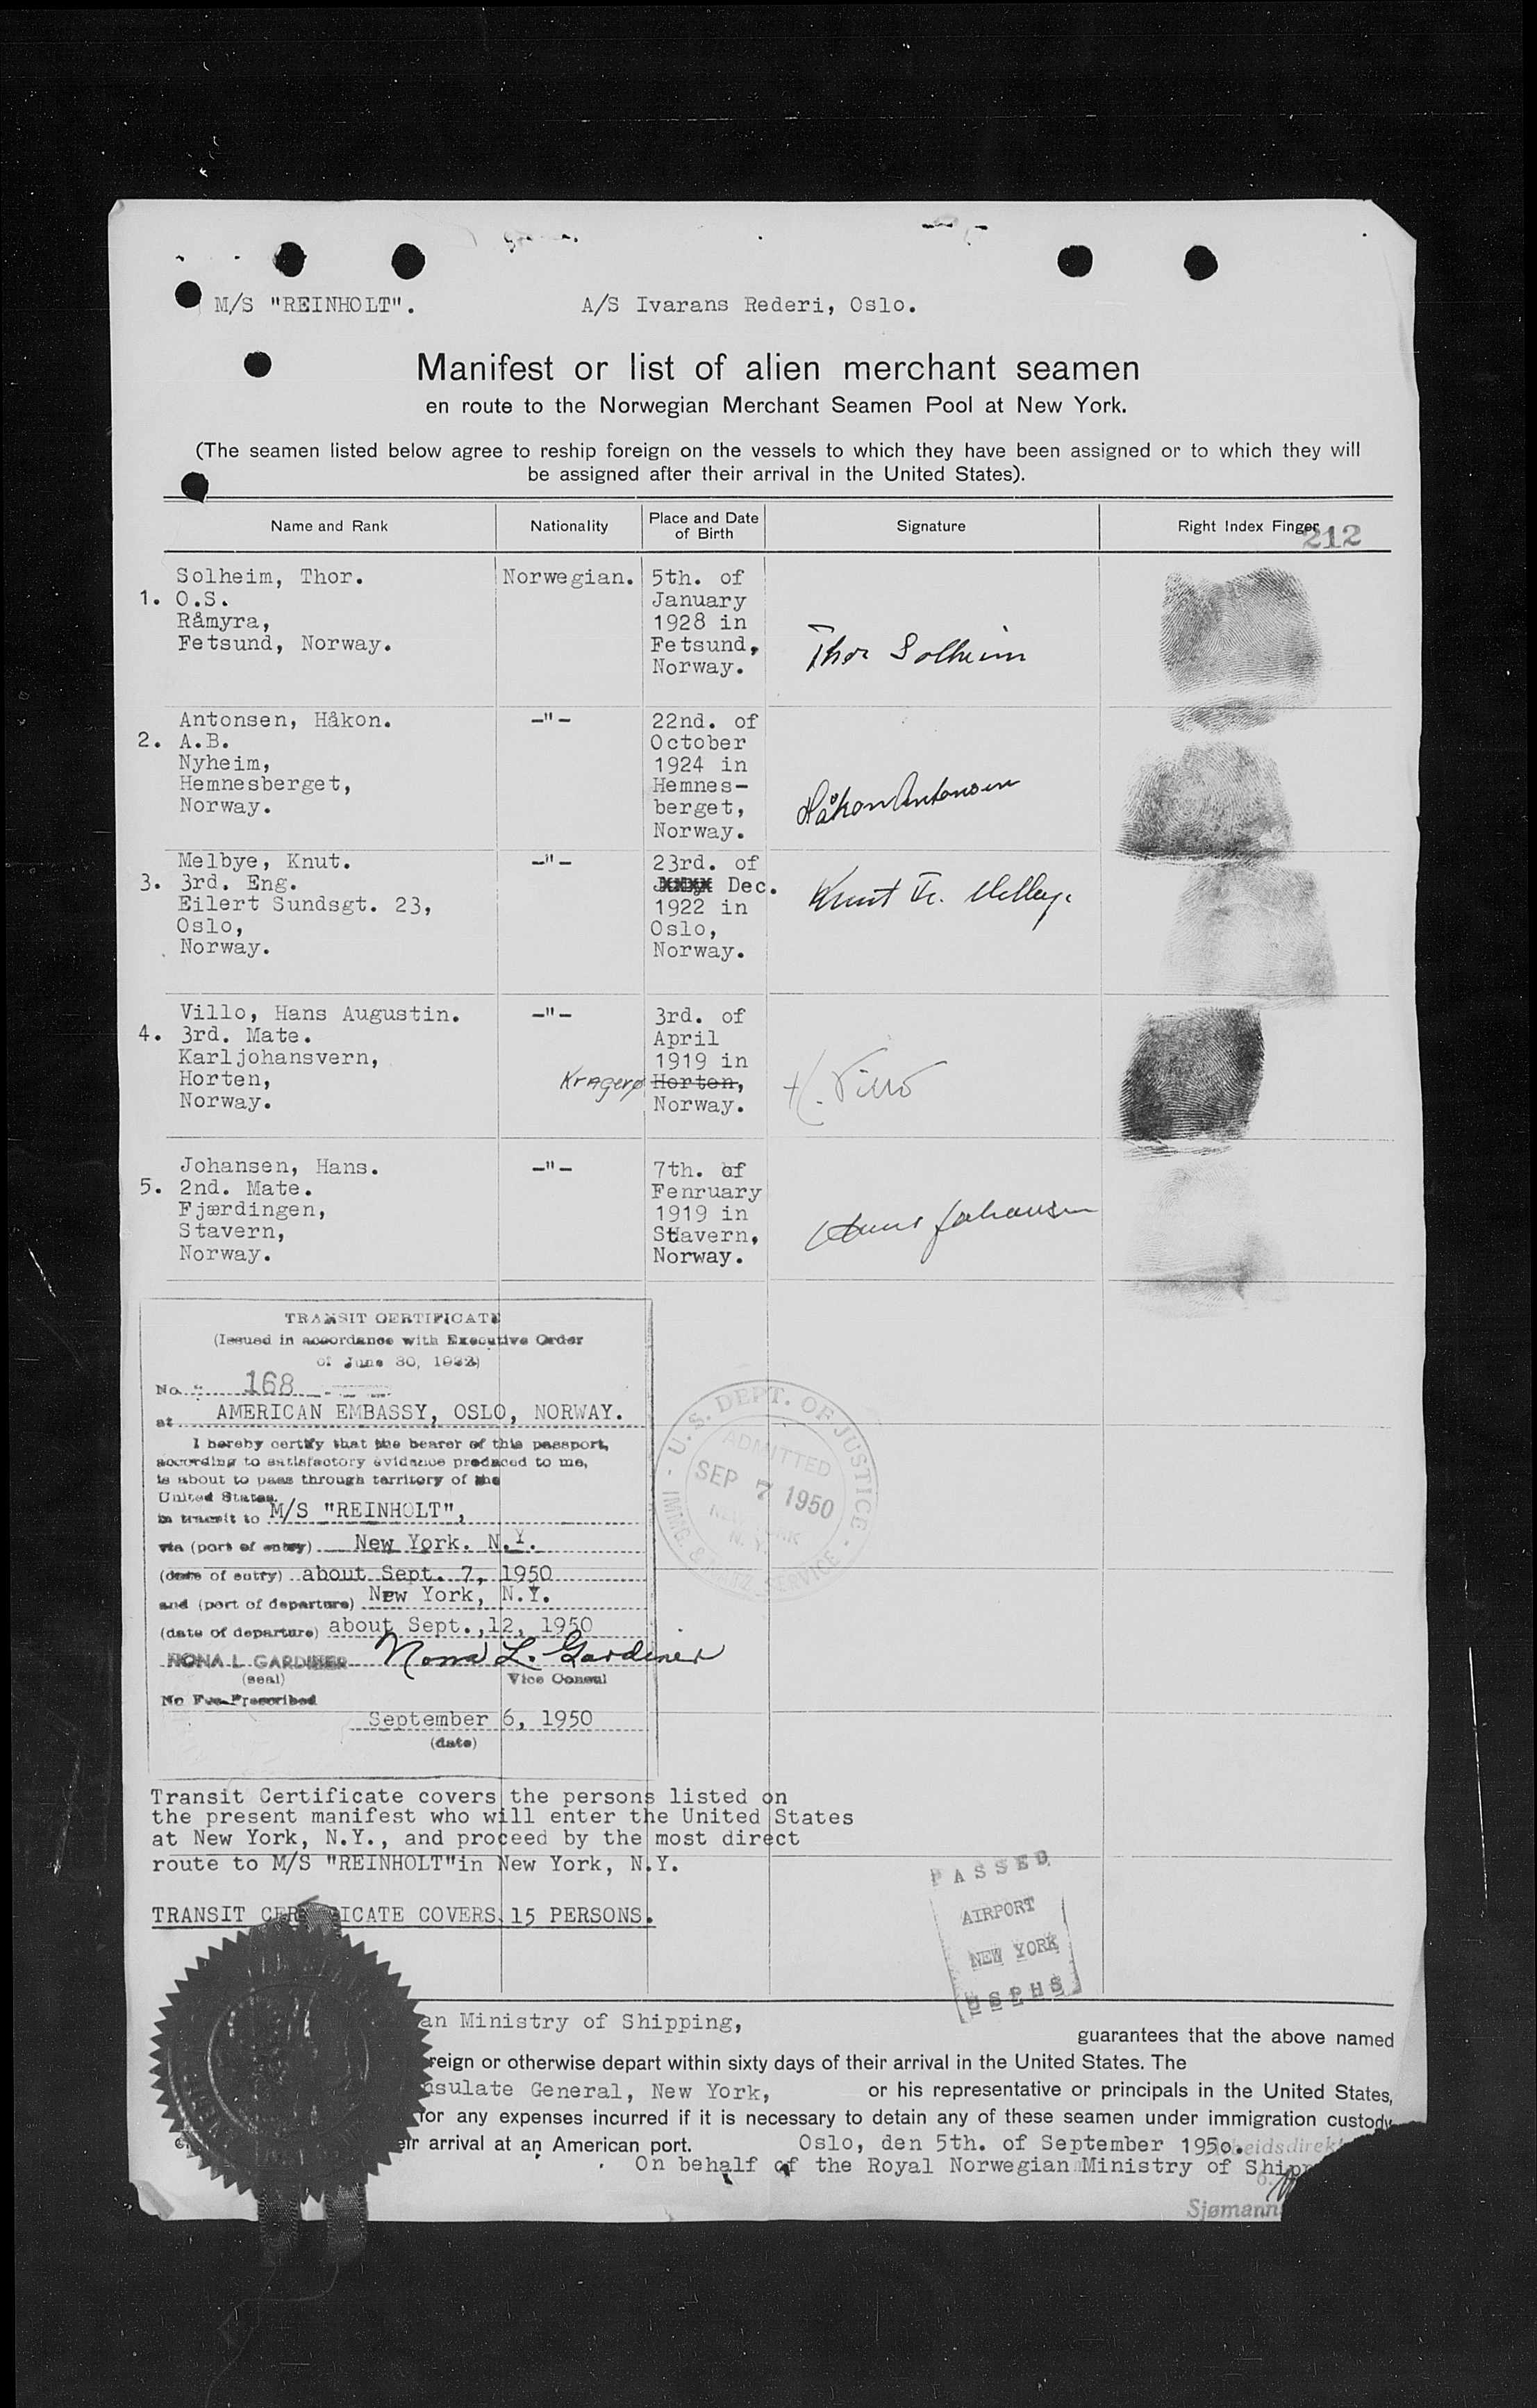 M/S "REINHOLT". A/S Ivarans Rederi, Oslo.
Manifest or list of alien merchant seamen
en route to the Norwegian Merchant Seamen Pool at New York.
(The seamen listed below agree to reship foreign on the vessels to which they have been assigned or to which they will
be assigned after their arrival in the United States).
Name and Rank
Nationality
Place and Date
of Birth
Signature
Right Index Finger
212
1.
Solheim, Thor.
O.S.
Råmyra,
Fetsund, Norway.
Norwegian.
5th. of
January
1928 in
Fetsund,
Norway.
Thor Solheim
2.
Antonsen, Håkon.
A.B.
Nyheim,
Hemnesberget,
Norway.
-"-
22nd. of
October
1924 in
Hemnes-
berget,
Norway.
Håkon Antonsen
3.
Melbye, Knut.
3rd. Eng.
Eilert Sundsgt. 23,
Oslo,
Norway.
-"-
23rd. of
Dec.
1922 in
Oslo,
Norway.
Knut Fr. Melbye.
4.
Villo, Hans Augustin.
3rd. Mate.
Karljohansvern,
Horten,
Norway.
-"-
3rd. of
April
1919 in
Kragerø Horten,
Norway.
H. Villo
5.
Johansen, Hans.
2nd. Mate.
Fjærdingen,
Stavern,
Norway.
-"-
7th. of
Fenruary
1919 in
Stavern,
Norway.
Hans Johansen
TRANSIT CERTIFICATE
(Issued in accordance with Executive Order
of June 30, 1932)
No. 168
at AMERICAN EMBASSY, OSLO, NORWAY.
I hereby certify that the bearer of this passport,
according to satisfactory evidence produced to me,
is about to pass through territory of the
United States
in transit to M/S "REINHOLT",
via (port of entry) New York. N.Y.
(date of entry) about Sept. 7, 1950
and (port of departure) New York, N.Y.
(date of departure) about Sept.,12, 1950
NONA L. GARDINER Nona L. Gardiner
(seal) Vice Consul
No Fee Prescribed
September 6, 1950
(date)
U.S. DEPT. OF JUSTICE
ADMITTED
SEP 7 1950
NEW YORK
N. Y.
IMMG. & NATZ. SERVICE
Transit Certificate covers the persons listed on
the present manifest who will enter the United States
at New York, N.Y., and proceed by the most direct
route to M/S "REINHOLT"in New York, N.Y.
TRANSIT CER ICATE COVERS 15 PERSONS.
PASSED
AIRPORT
NEW YORK
USPHS
an Ministry of Shipping, guarantees that the above named
reign or otherwise depart within sixty days of their arrival in the United States. The
nsulate General, New York, or his representative or principals in the United States,
for any expenses incurred if it is necessary to detain any of these seamen under immigration custody
eir arrival at an American port. Oslo, den 5th. of September 1950.
beidsdirek
On behalf of the Royal Norwegian Ministry of Shipp
Sjømann